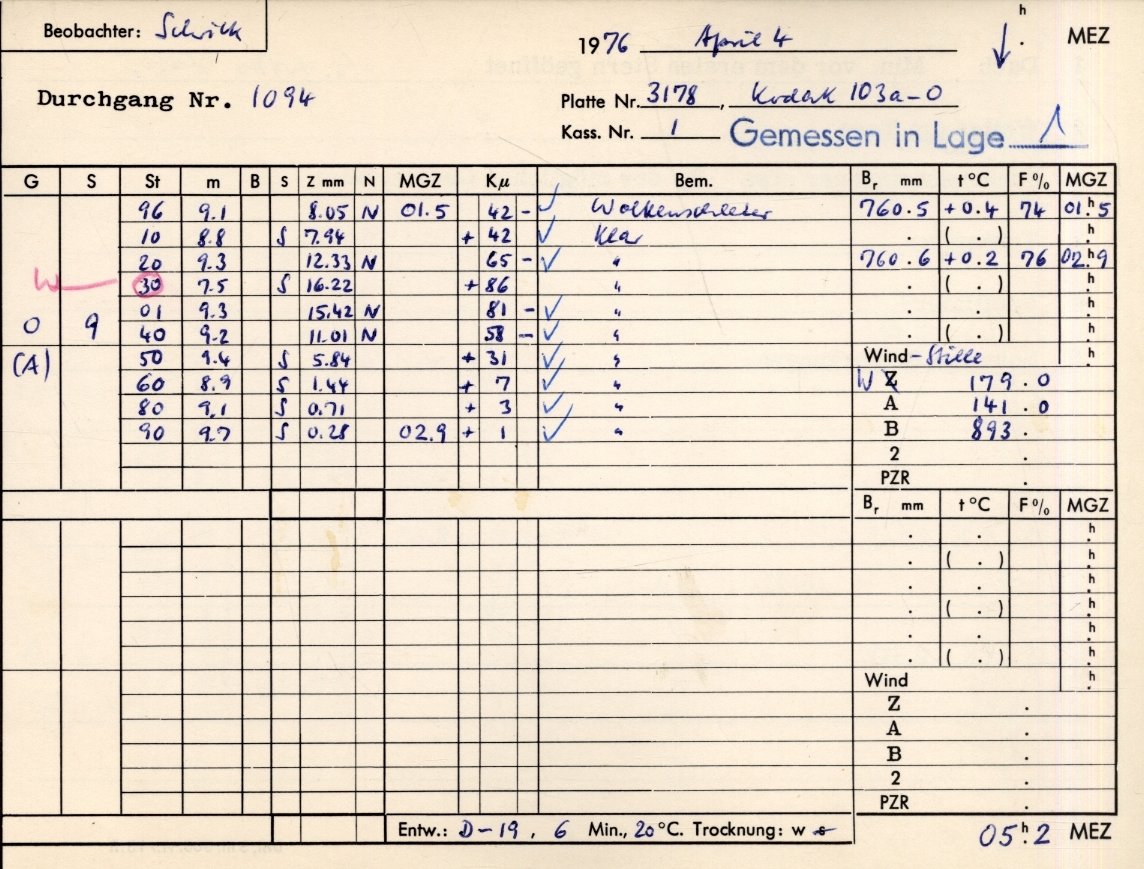 Beobachter: Schick
1976 April 4 h . MEZ
Durchgang Nr. 1094
Platte Nr. 3178, Kodak 103a-O
Kass. Nr. 1 Gemessen in Lage 1
G S St m B S Z mm N MGZ Kμ Bem. Br mm t °C F% MGZ
96 9.1 8.05 N 01.5 42 - ✓ Wolkenschleier 760.5 +0.4 74 01.h5
10 8.8 S 7.94 + 42 ✓ Klar . ( . ) h.
20 9.3 12.33 N 65 - ✓ " 760.6 +0.2 76 02.h9
W 30 7.5 S 16.22 + 86 " . ( . ) h.
01 9.3 15.42 N 81 - ✓ " . h.
0 9 40 9.2 11.01 N 58 - ✓ " . ( . ) h.
(A) 50 9.4 S 5.84 + 31 ✓ " Wind - Stille h.
60 8.9 S 1.44 + 7 ✓ " W Z 179.0
80 9.1 S 0.71 + 3 ✓ " A 141.0
90 9.7 S 0.28 02.9 + 1 ✓ " B 893.
2 .
PZR .
Br mm t °C F% MGZ
. . h.
. ( . ) h.
. . h.
. ( . ) h.
. . h.
. ( . ) h.
Wind h.
Z .
A .
B .
2 .
PZR .
Entw.: D-19, 6 Min., 20 °C. Trocknung: w s
05.h2 MEZ